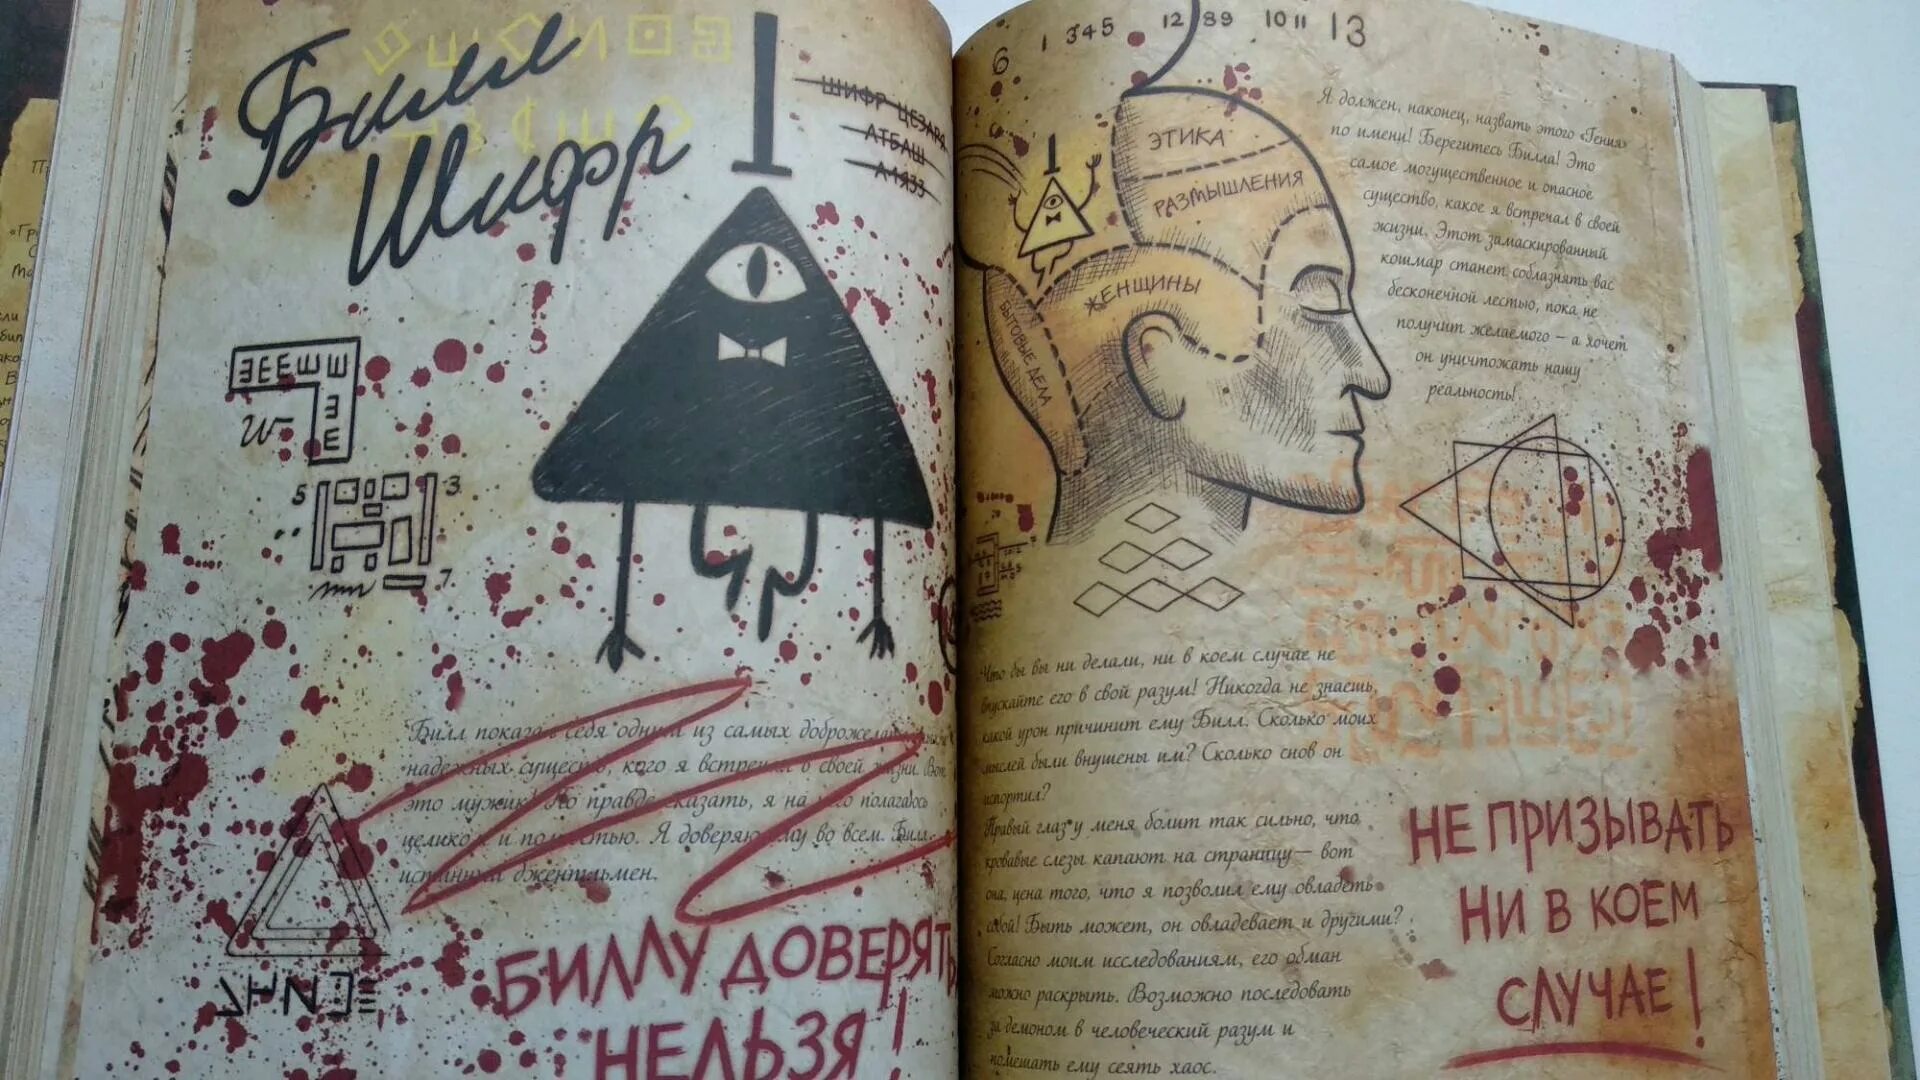 Билл
Шифр
ШИФР ЦЕЗАРЯ
АТБАШ
А1Я33
5
3
7
Билл показал себя одним из самых
надежных существ, кого я встречал в своей жизни. Вот
это мужик! По правде сказать, я на него полагаюсь
целиком и полностью. Я доверяю ему во всем. Билл
истинный джентльмен.
БИЛЛУ ДОВЕРЯТЬ
НЕЛЬЗЯ!
6 1 345 12 89 10 11 13
ЭТИКА
РАЗМЫШЛЕНИЯ
ЖЕНЩИНЫ
БЫТОВЫЕ ДЕЛА
Я должен, наконец, назвать этого «Гения»
по имени! Берегитесь Билла! Это
самое могущественное и опасное
существо, какое я встречал в своей
жизни. Этот замаскированный
кошмар станет соблазнять вас
бесконечной лестью, пока не
получит желаемого – а хочет
он уничтожать нашу
реальность!
Что бы вы ни делали, ни в коем случае не
впускайте его в свой разум! Никогда не знаешь,
какой урон причинит ему Билл. Сколько моих
мыслей были внушены им? Сколько снов он
испортил?
Правый глаз у меня болит так сильно, что
кровавые слезы капают на страницу— вот
она, цена того, что я позволил ему овладеть
собой! Быть может, он овладевает и другими?
Согласно моим исследованиям, его обман
можно раскрыть. Возможно последовать
за демоном в человеческий разум и
помешать ему сеять хаос.
НЕ ПРИЗЫВАТЬ
НИ В КОЕМ
СЛУЧАЕ!